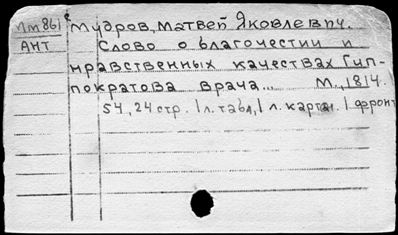 Мм861 Мудров, Матвей Яковлевич.
АНТ Слово о благочестии и
нравственных качествах Гип-
пократова врача... М., 1814.
54, 24 стр. 1 л. табл, 1 л. карта. 1 фронт